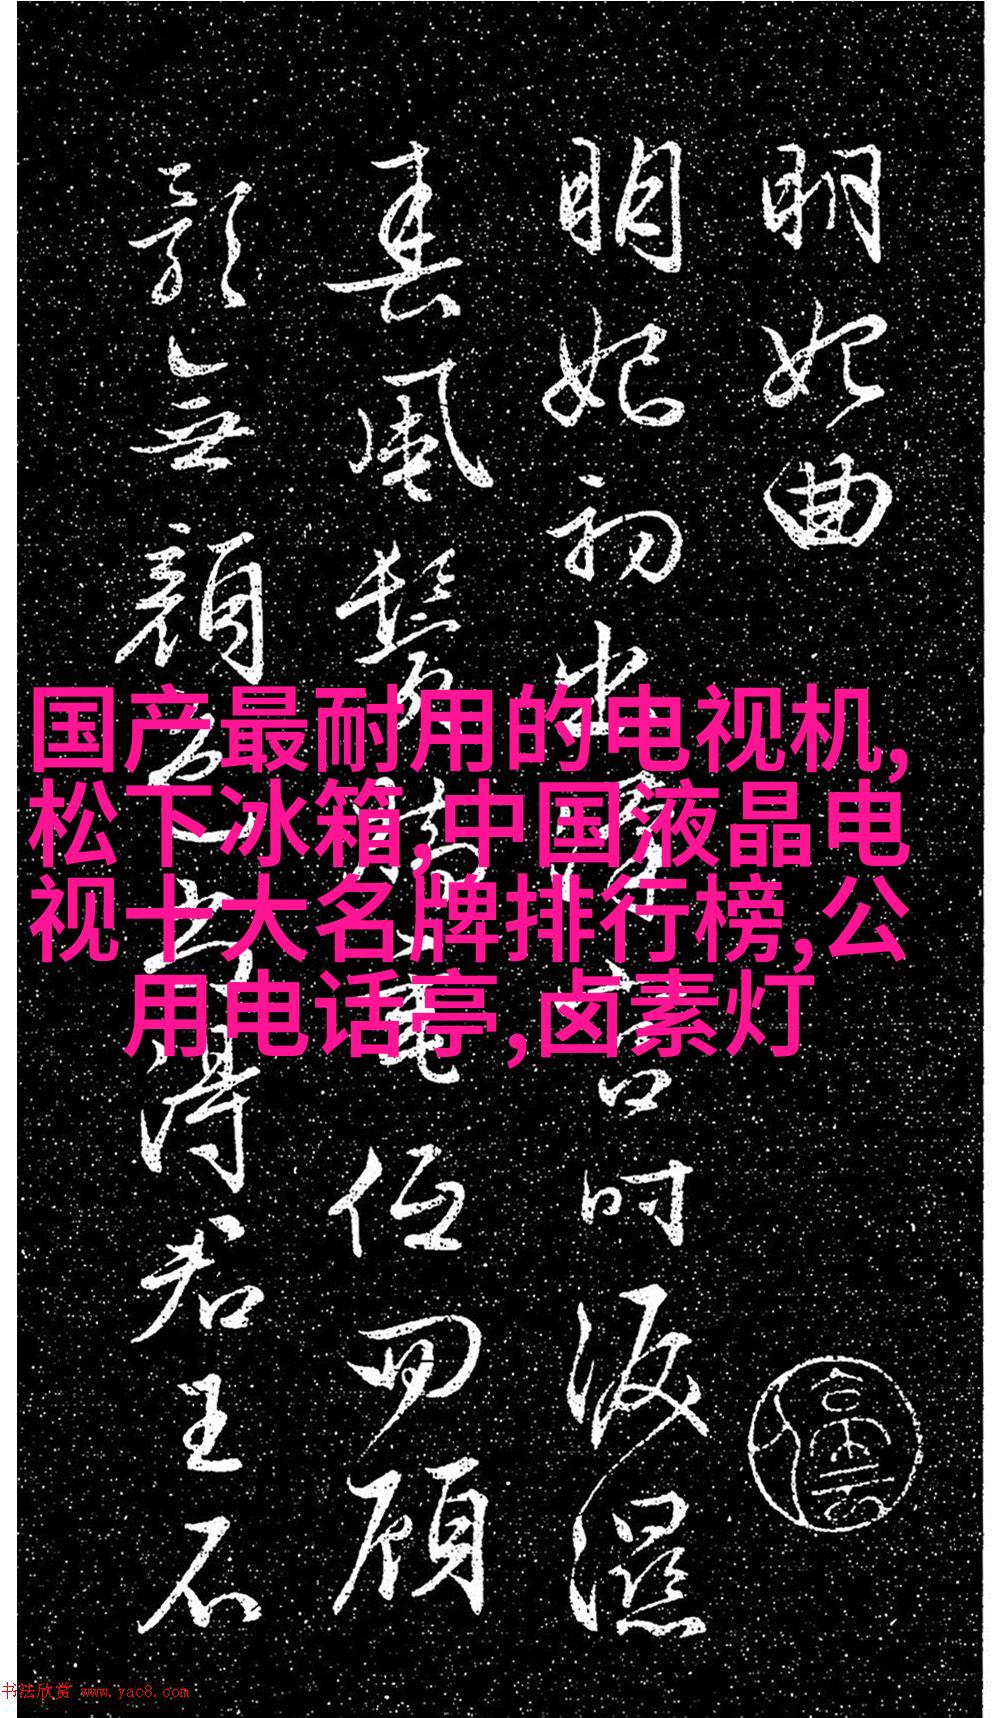 明妃曲
明妃初出漢宮時淚濕
春風鬢腳垂低回顧
影無顏色尚得君王不
国产最耐用的电视机,
松下冰箱,中国液晶电
视十大名牌排行榜,公
用电话亭,卤素灯
书法欣赏 www.yac8.com